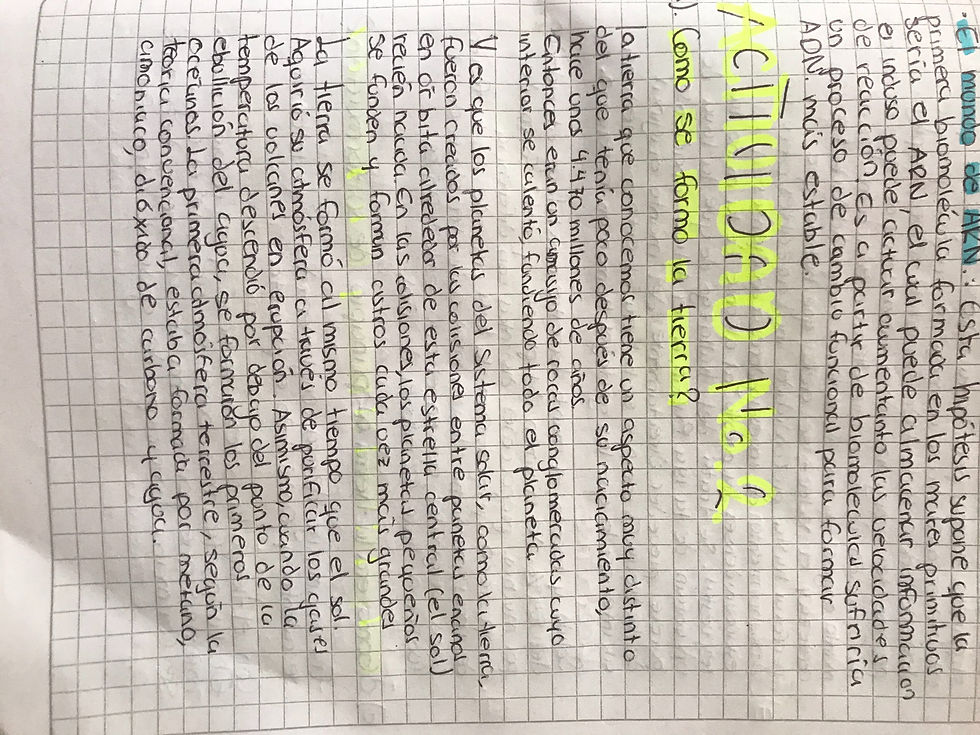 . El mundo de ARN: Esta hipótesis supone que la
primera biomolécula formada en los mares primitivos
sería el ARN, el cual puede almacenar información
e incluso puede actuar aumentanto las velocidades
de reacción Es a partir de biomolecula sufriría
un proceso de cambio funcional para formar
ADN más estable.
ACTIVIDAD No.2.
). Como se formo la tierra?
la tierra que conocemos tiene un aspecto muy distinto
del que tenía poco después de su nacimiento,
hace unos 4.470 millones de años
Entonces era un amasijo de rocas conglomeradas cuyo
interior se calentó, fundiendo todo el planeta
Y es que los planetas del Sistema solar, como la tierra,
fueron creados por las colisiones entre planetas enanos
en órbita alrededor de esta estrella central (el sol)
recién nacida En las colisiones, los planetas pequeños
se funden y forman astros cada vez más grandes
La tierra se formó al mismo tiempo que el sol.
Aquirió su atmósfera a través de porificar los gases
de los volcanes en erupción. Asimismo, cuando la
temperatura descendió por debajo del punto de la
ebullición del agua, se formaron los primeros
oceanos. La primera atmósfera terrestre, según la
teoría convencional, estaba formada por metano,
amoniaco, dióxido de carbono y agua.